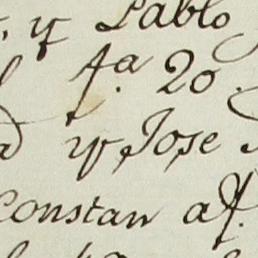 , y Pablo
f.a 20.
y Jose
constan af.